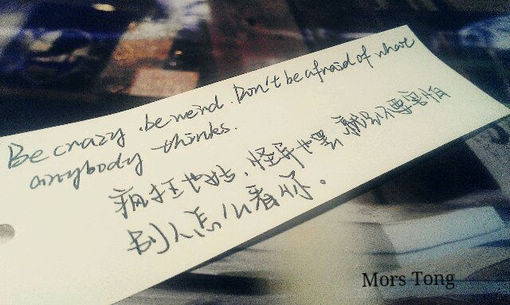 Be crazy .be weird .Don't be afraid of what
anybody thinks.
疯狂也好，怪异也罢，就是不要害怕
别人怎么看你。
Mors Tong